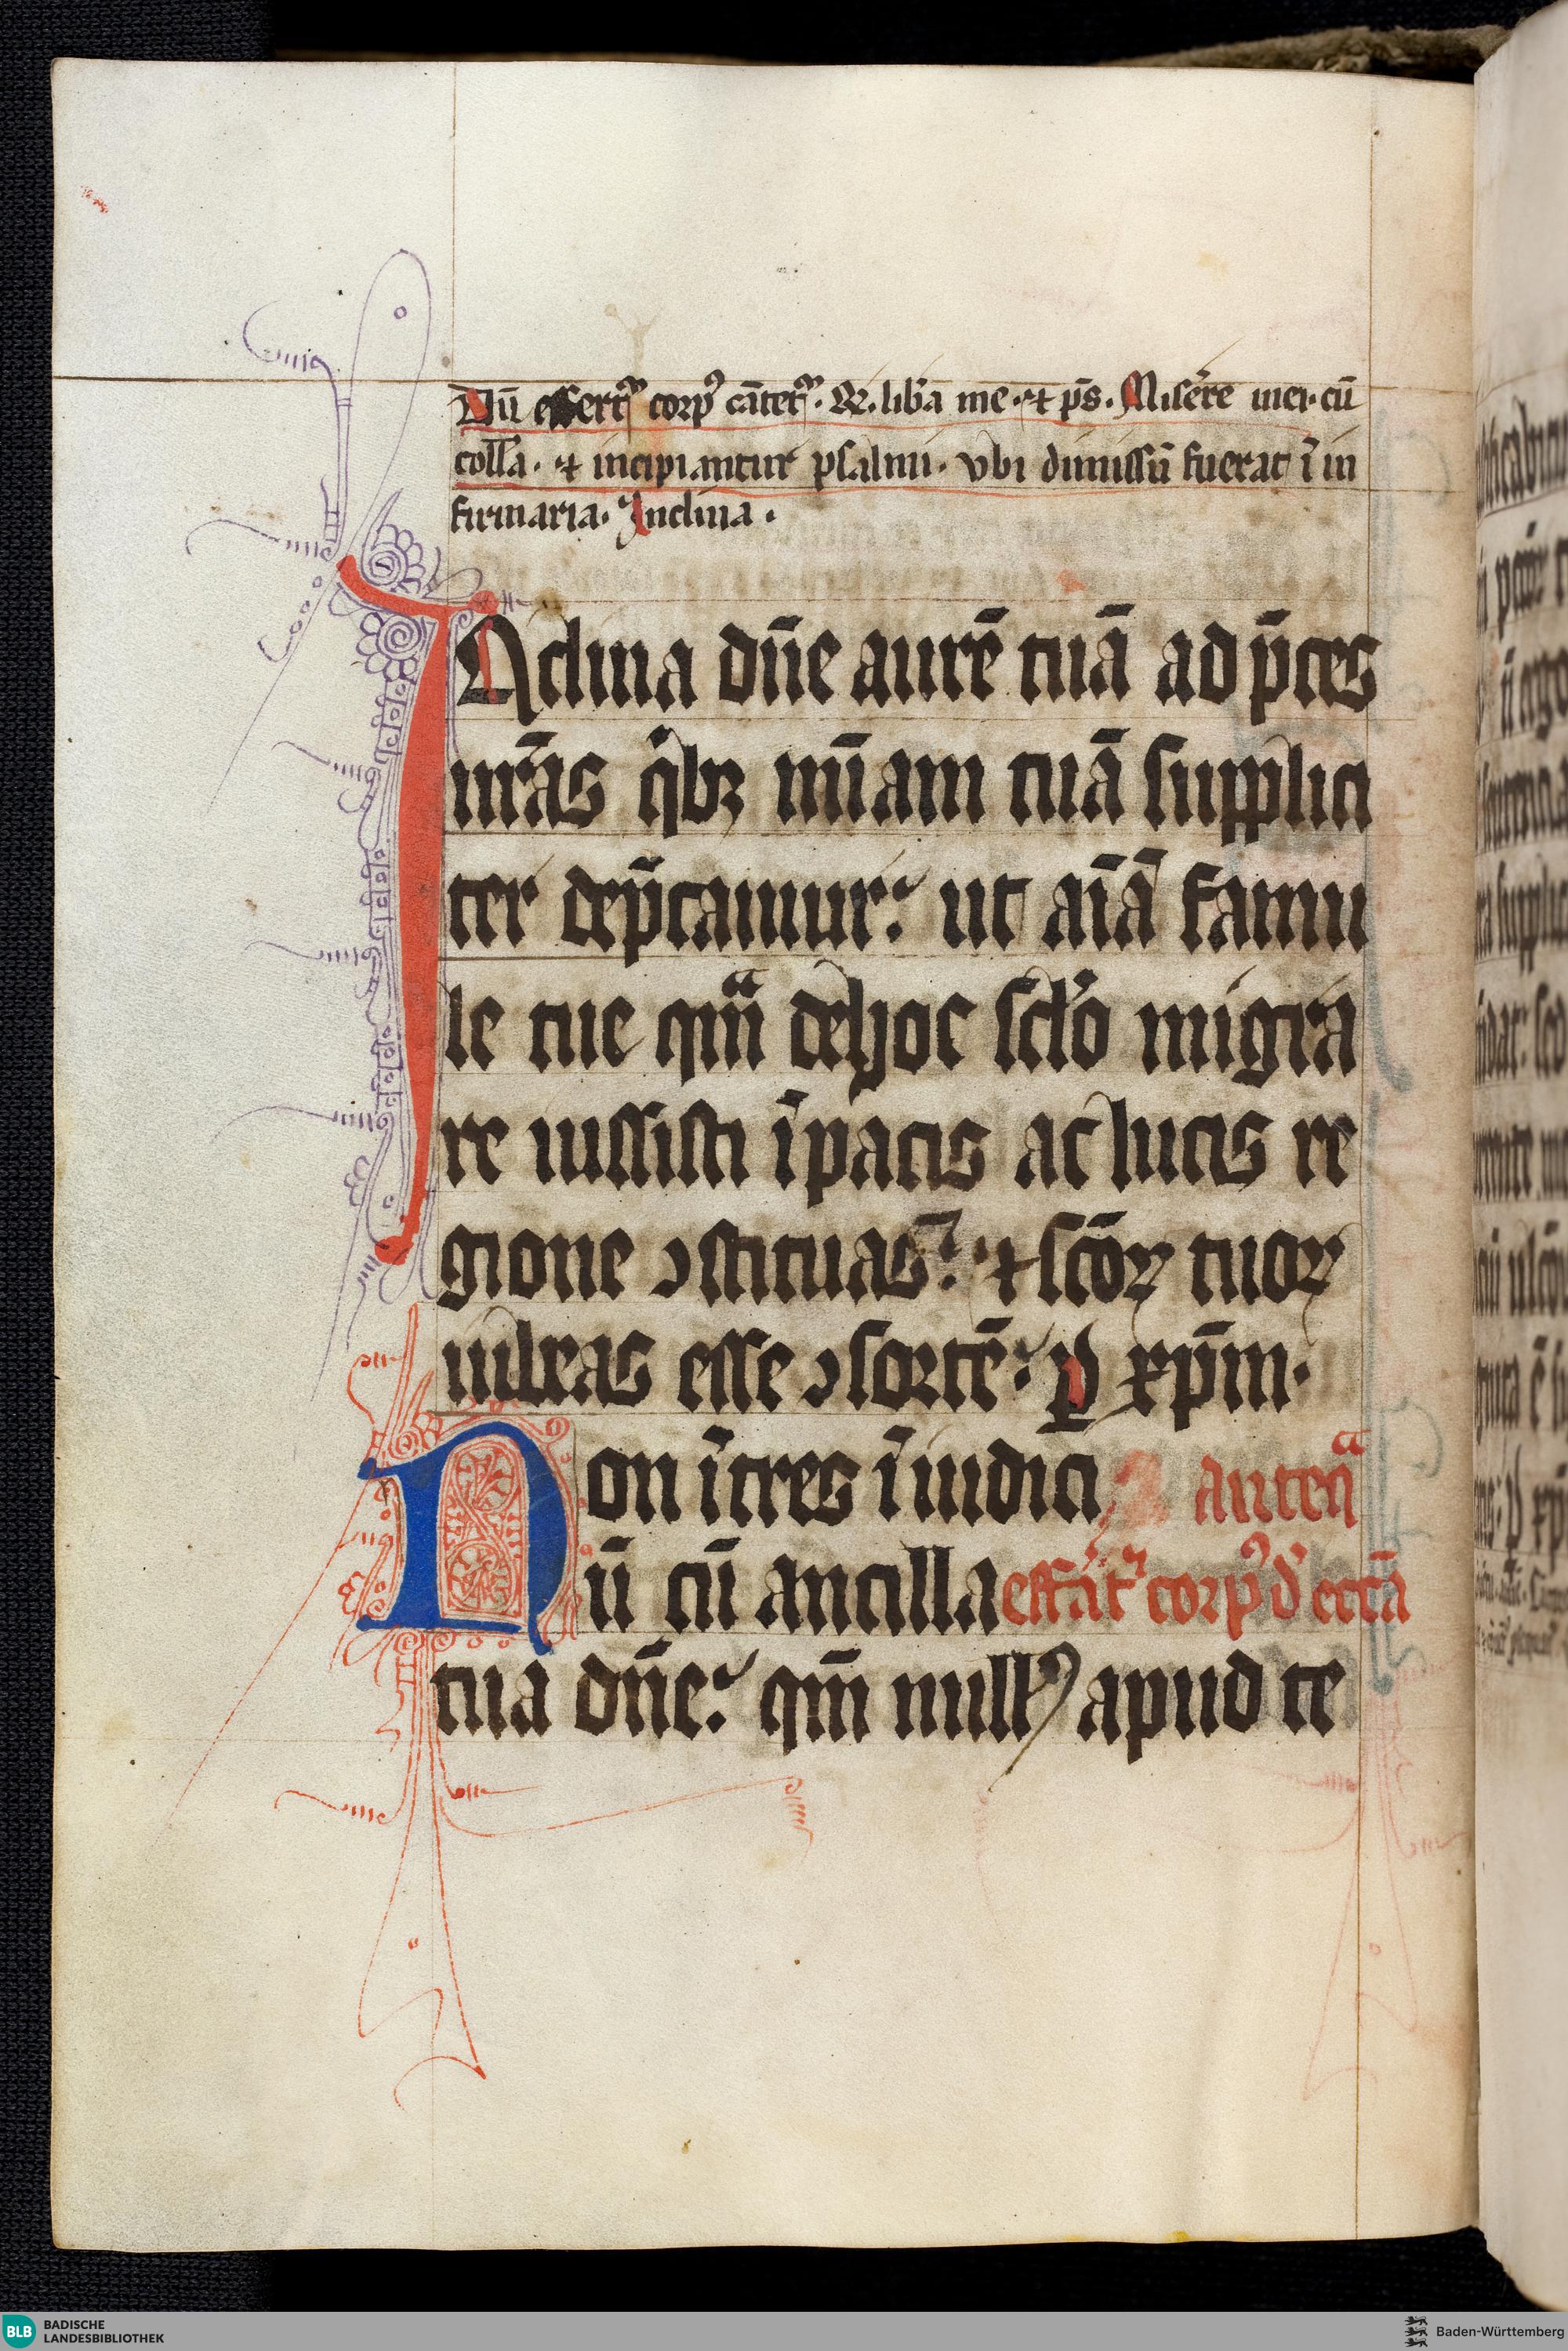 Dū effertʳ corpꝰ cātetʳ. R. lib̄a me. ⁊ p̄s. Misēre mei. cū
coll̄a. ⁊ incipiantur psalmi. vbi dimissū fuerat ī in
firmaria. Inclina.
INclina dn̄e aurē tuā ad p̄ces
nr̄as qⁱbꝫ mīam tuā supplici
ter dep̄camur: ut aīā famu
le tue quā de hoc sclo migra
re iussisti ī pacis ac lucis re
gione ꝯstituas: ⁊ scōꝝ tuoꝝ
iubeas esse ꝯsortē: ꝑ xp̄m.
Non ītres ī iudici anten̄
ū cū ancilla effāt corpꝰ d' eccā
tua dn̄e: qm̄ nullꝰ apud te
BLB BADISCHE
LANDESBIBLIOTHEK
Baden-Württemberg